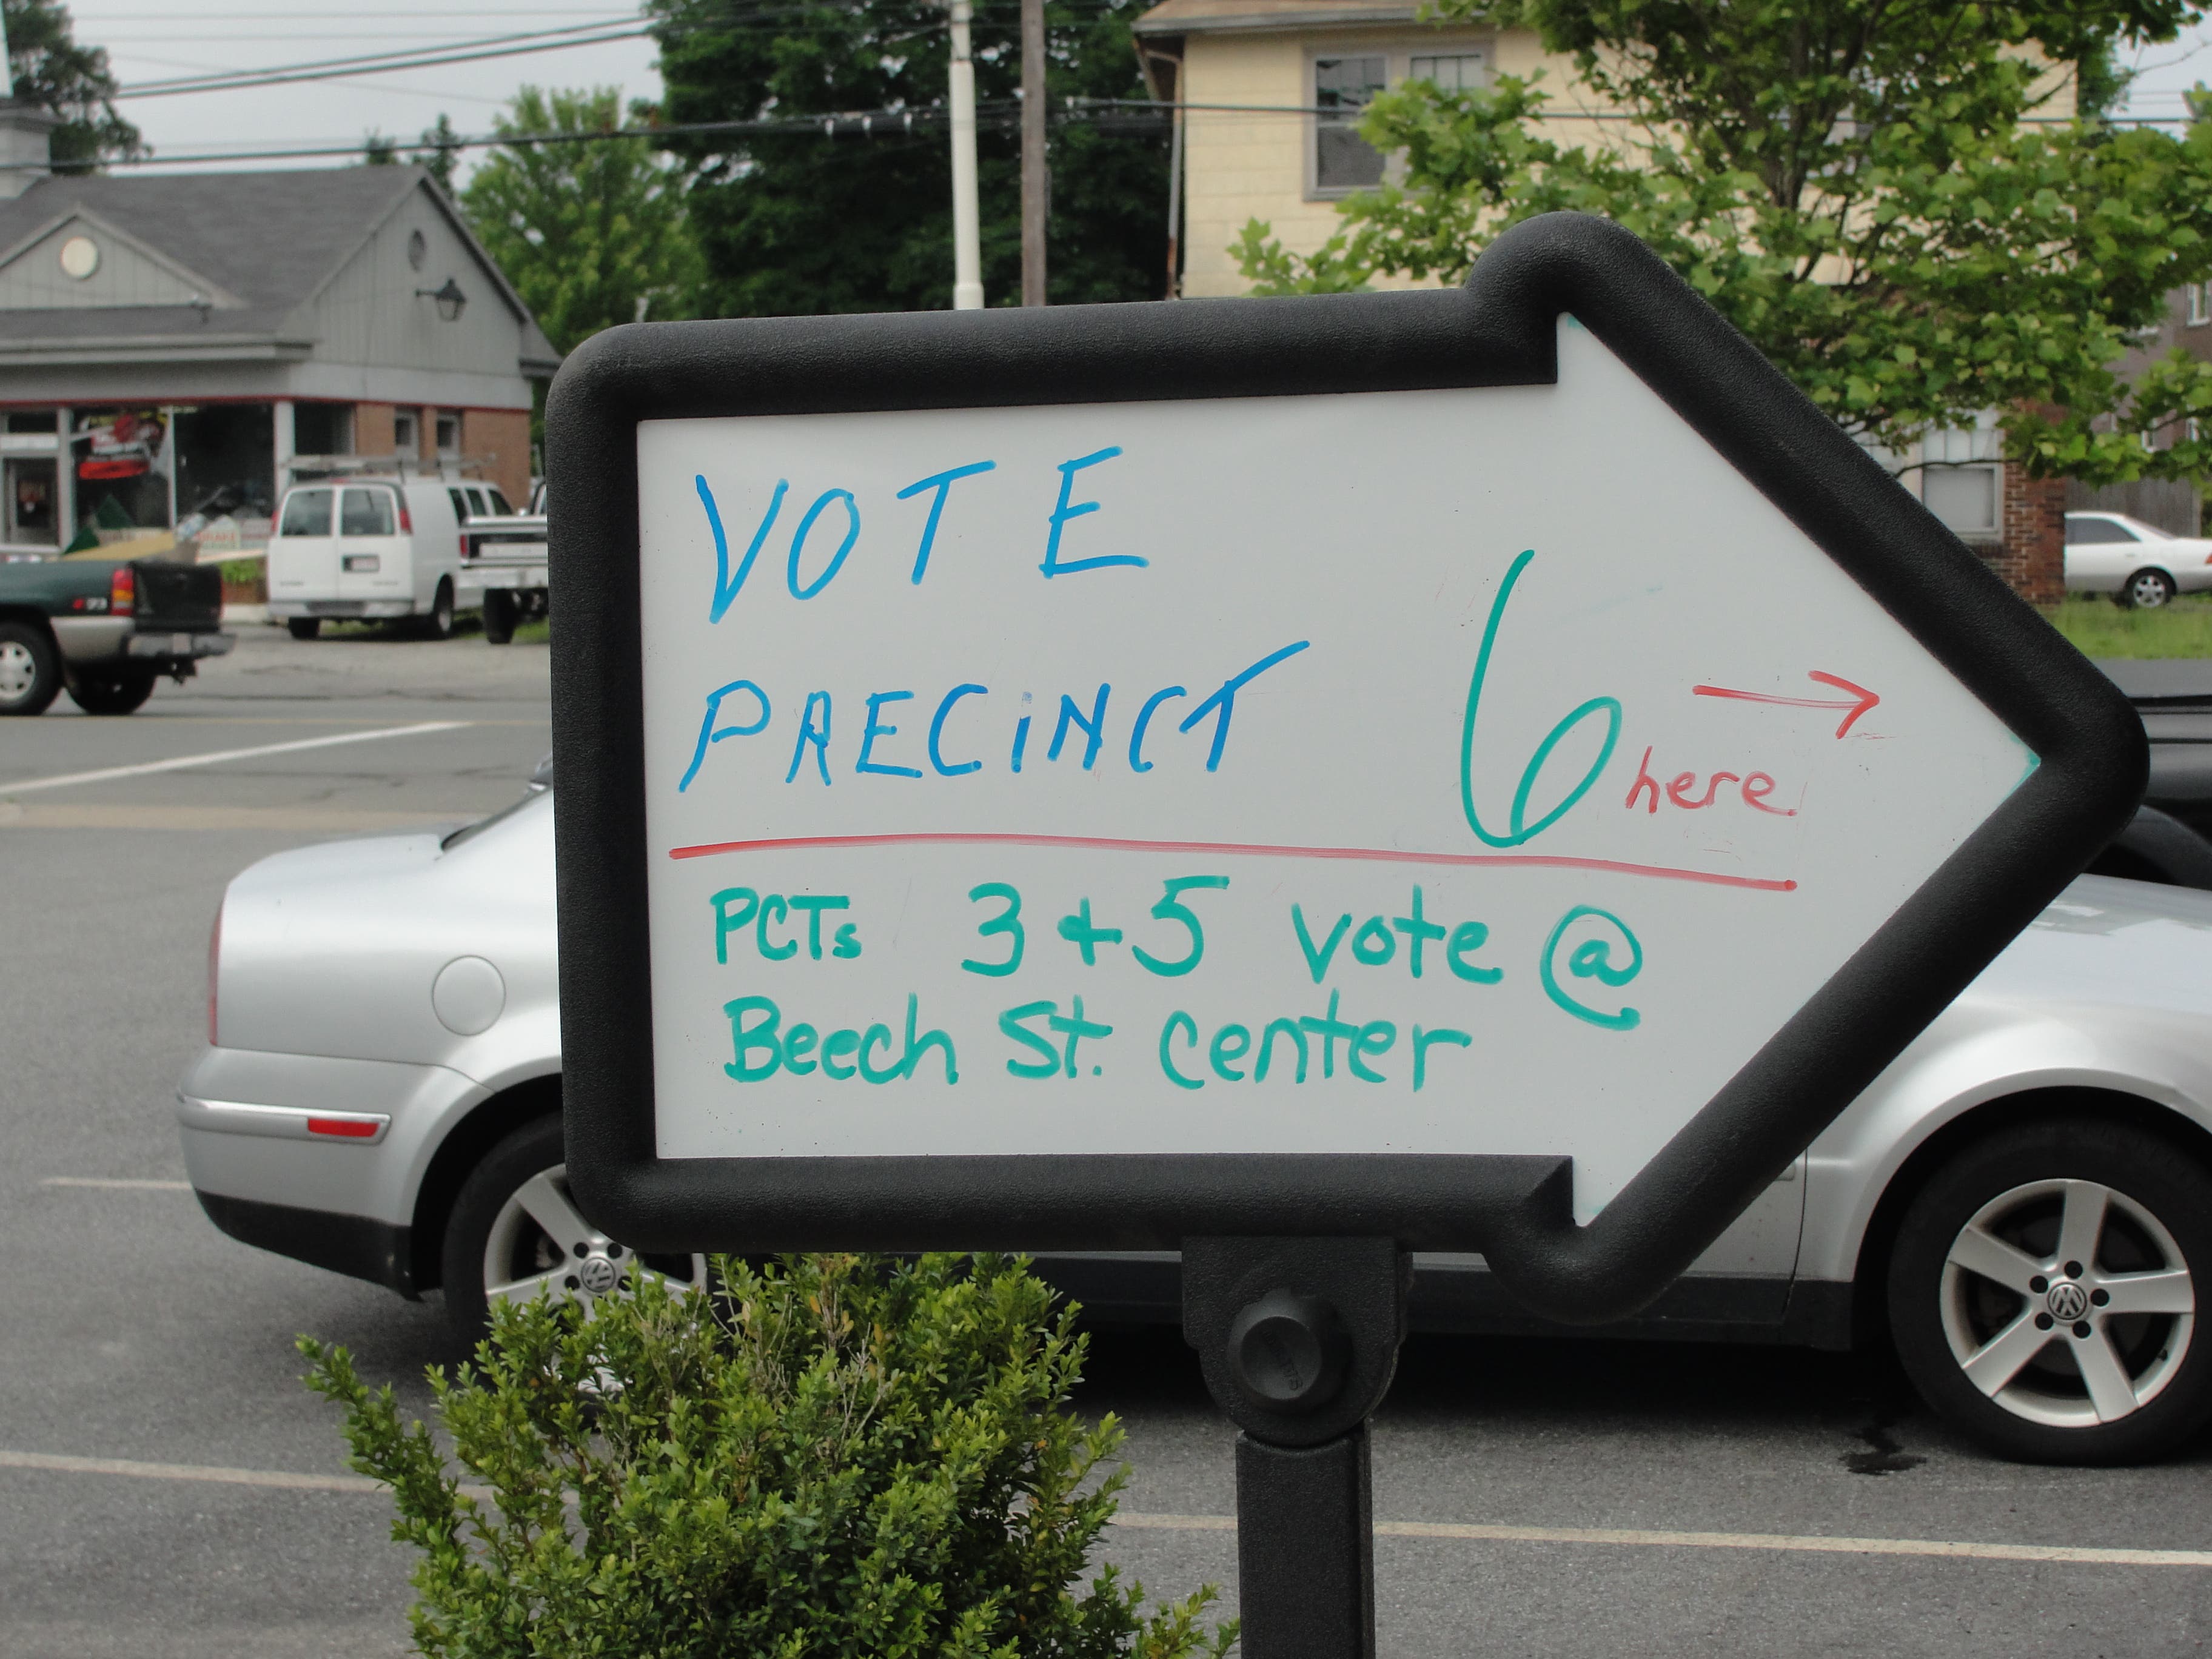 VOTE
PRECINCT 6 →
here
PCTs 3 + 5 vote @
Beech St. center